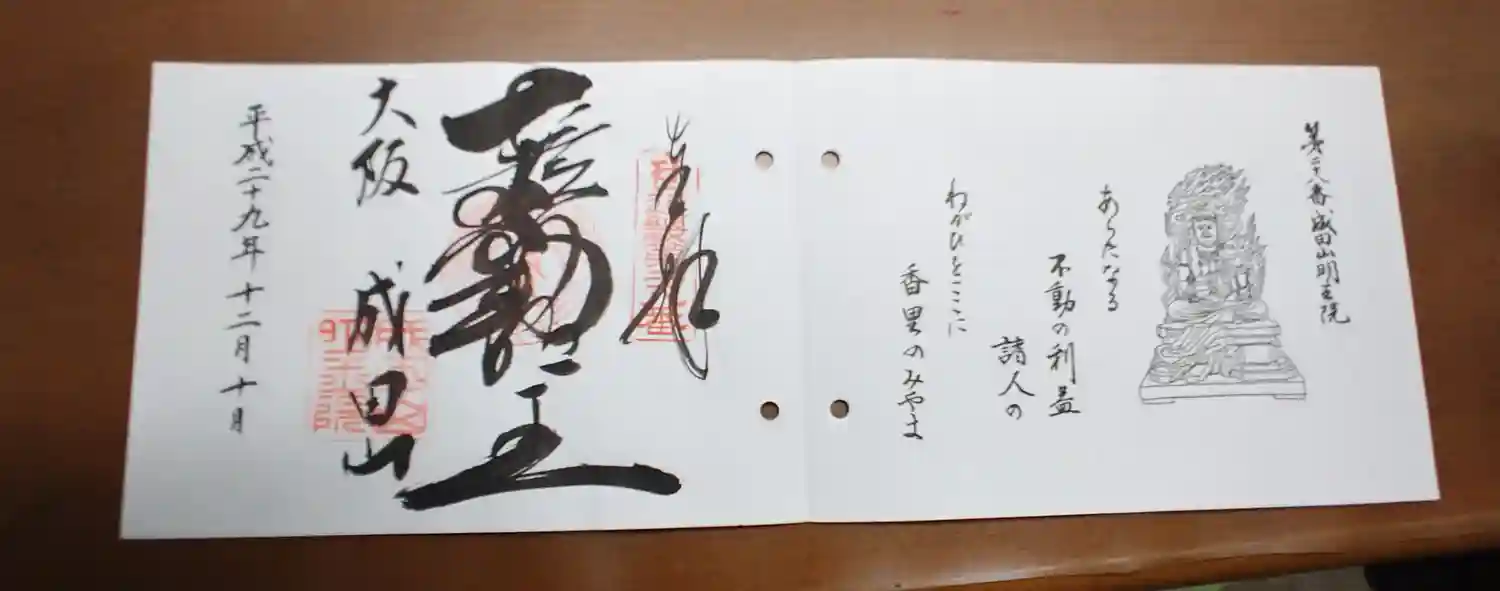 第二十八番 成田山明王院
あらたなる
不動の利益
諸人の
ねがひをここに
香里のみやま
奉拝
大阪 成田山
平成二十九年十二月十日